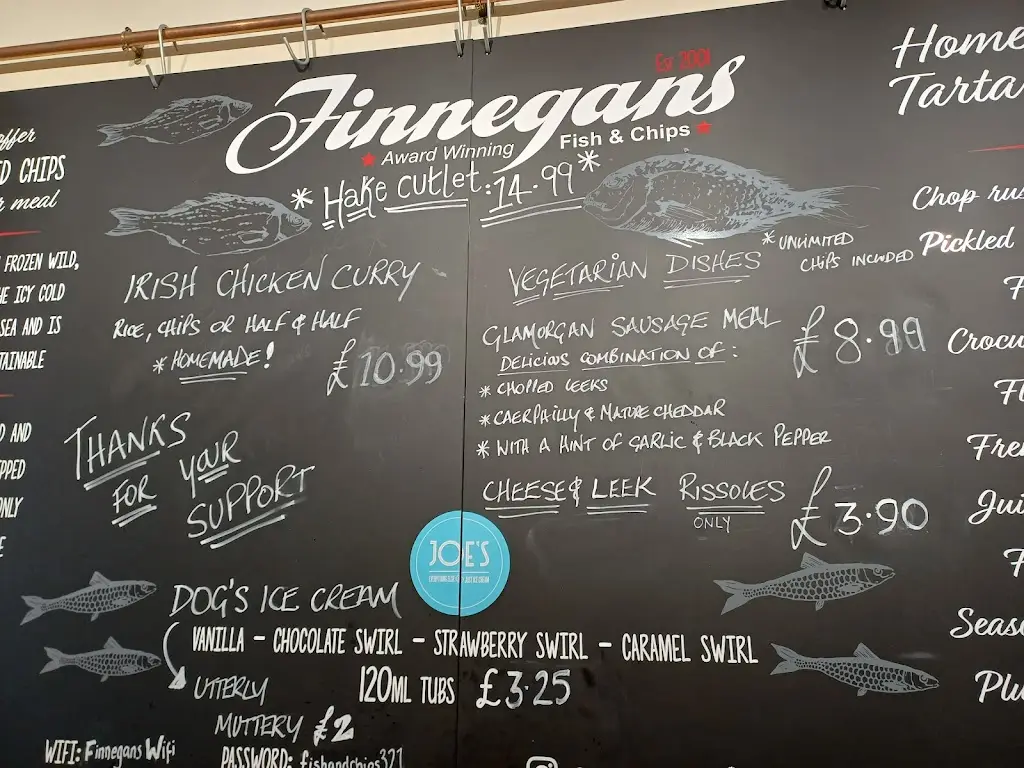 offer
D CHIPS
r meal
FROZEN WILD,
HE ICY COLD
SEA AND IS
TAINABLE
D AND
PPED
ONLY
E
Est 2001
Finnegans
★ Award Winning Fish & Chips ★
* Hake cutlet: 14.99 *
IRISH CHICKEN CURRY
RICE, CHIPS OR HALF & HALF
* HOMEMADE!
£10.99
THANKS
FOR YOUR
SUPPORT
VEGETARIAN DISHES
* UNLIMITED
CHIPS INCLUDED
GLAMORGAN SAUSAGE MEAL £8.99
DELICIOUS COMBINATION OF:
* CHOPPED LEEKS
* CAERPHILLY & MATURE CHEDDAR
* WITH A HINT OF GARLIC & BLACK PEPPER
CHEESE & LEEK RISSOLES £3.90
ONLY
JOE'S
DOG'S ICE CREAM
VANILLA - CHOCOLATE SWIRL - STRAWBERRY SWIRL - CARAMEL SWIRL
120ML TUBS £3.25
UTTERLY
MUTTERY £2
WIFI: Finnegans Wifi
PASSWORD: fishandchips321
Home
Tarta
Chop rus
Pickled
F
Crocu
Fl
Fre
Jui
F
Seas
Plu